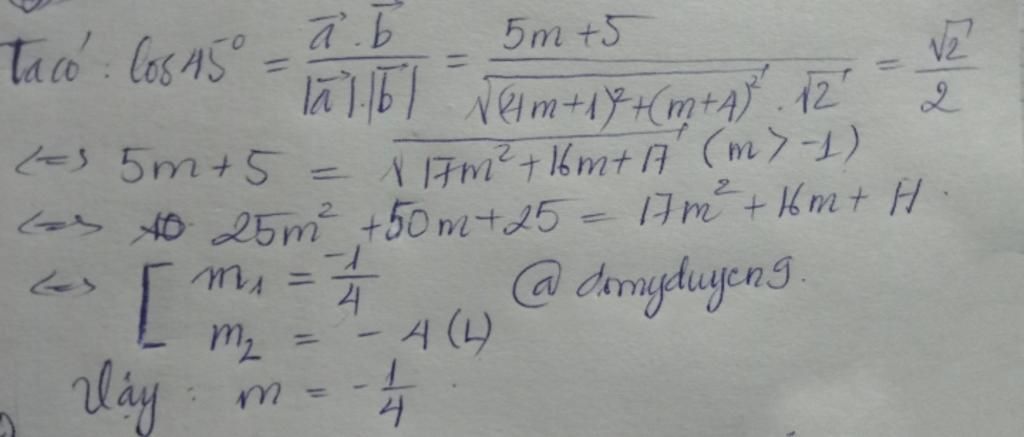 Ta có: cos45° = \frac{\vec{a}.\vec{b}}{|\vec{a}|.|\vec{b}|} = \frac{5m+5}{\sqrt{(4m+1)^2+(m+4)^2}.\sqrt{2}} = \frac{\sqrt{2}}{2}
<=> 5m+5 = \sqrt{17m^2+16m+17} (m>-1)
<=> 25m^2+50m+25 = 17m^2+16m+17.
<=> [ m_1 = \frac{-1}{4} @domyduyeng.
m_2 = -4 (L)
Vậy: m = -\frac{1}{4}.